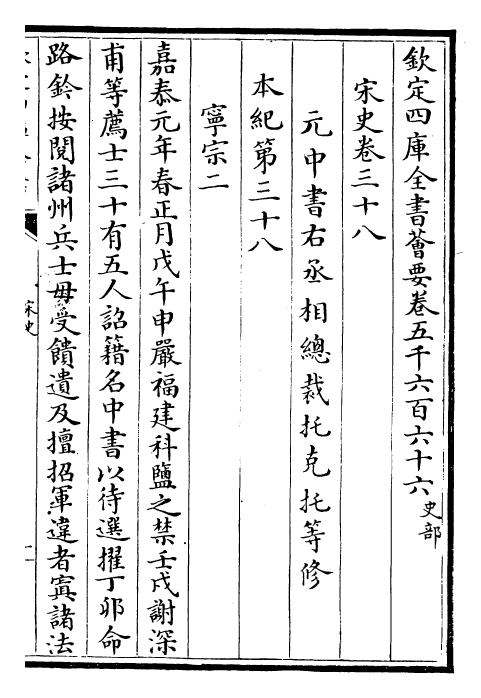 欽定四庫全書薈要卷五千六百六十六史部
宋史卷三十八
元中書右丞相總裁托克托等修
本紀第三十八
寧宗二
嘉泰元年春正月戊午申嚴福建科鹽之禁壬戌謝深
甫等薦士三十有五人詔籍名中書以待選擢丁卯命
路鈐按閱諸州兵士毋受饋遺及擅招軍違者寘諸法
宋史